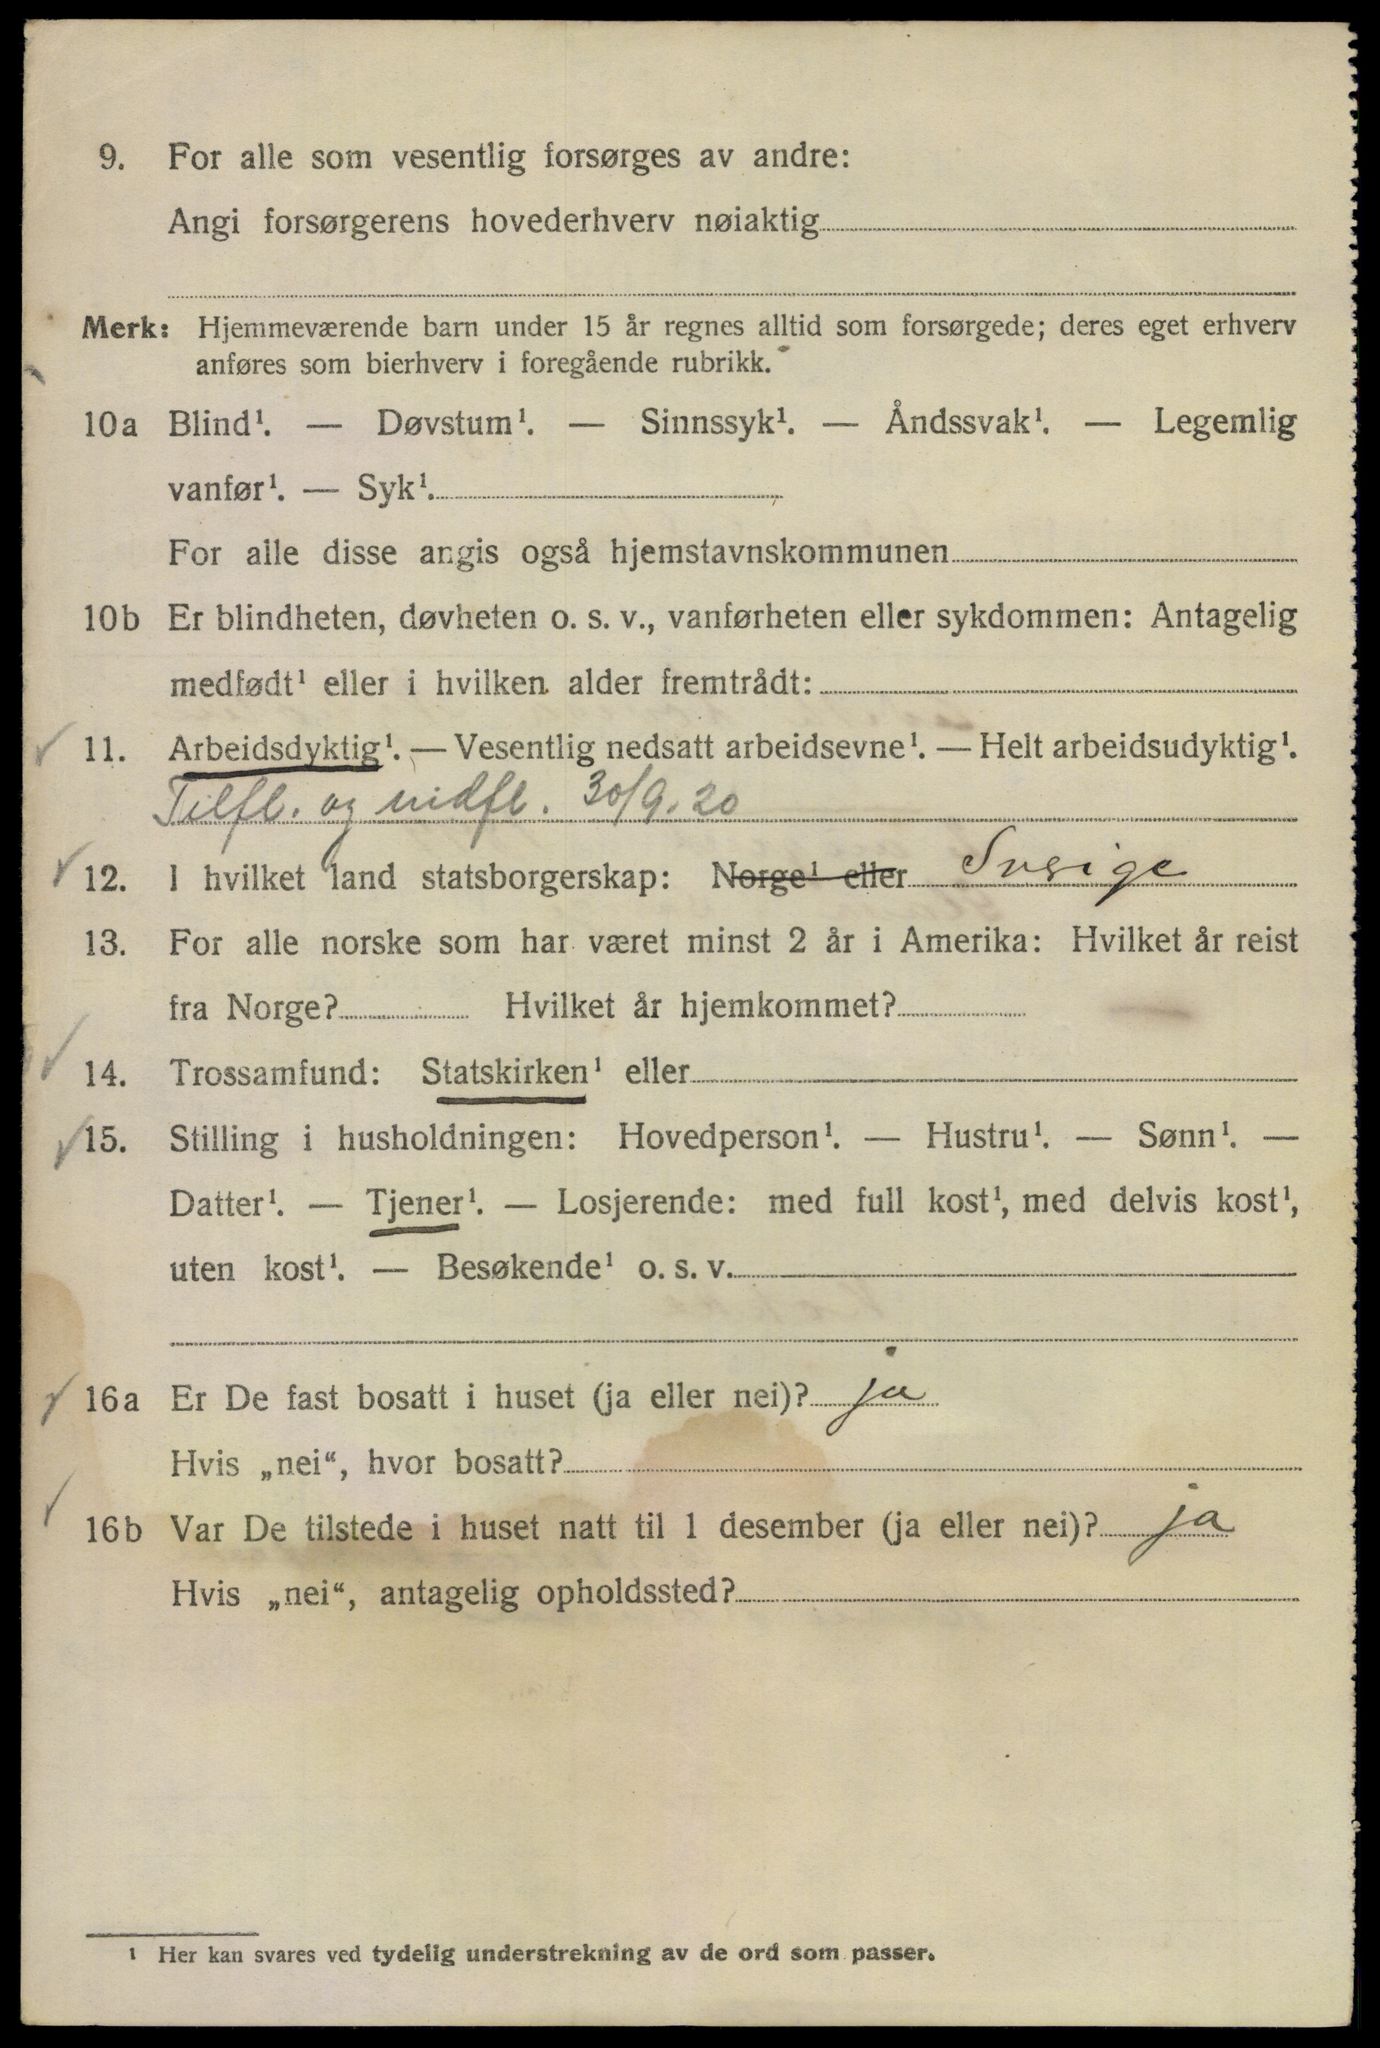 9. For alle som vesentlig forsørges av andre:
Angi forsørgerens hovederhverv nøiaktig
Merk: Hjemmeværende barn under 15 år regnes alltid som forsørgede; deres eget erhverv
anføres som bierhverv i foregående rubrikk.
10a Blind¹. — Døvstum¹. — Sinnssyk¹. — Åndssvak¹. — Legemlig
vanfør¹. — Syk¹.
For alle disse angis også hjemstavnskommunen
10b Er blindheten, døvheten o. s. v., vanførheten eller sykdommen: Antagelig
medfødt¹ eller i hvilken alder fremtrådt:
11. Arbeidsdyktig¹. — Vesentlig nedsatt arbeidsevne¹. — Helt arbeidsudyktig¹.
Tilfl. og indfl. 30/9.20
12. I hvilket land statsborgerskap: Norge¹ eller Sverige
13. For alle norske som har været minst 2 år i Amerika: Hvilket år reist
fra Norge? Hvilket år hjemkommet?
14. Trossamfund: Statskirken¹ eller
15. Stilling i husholdningen: Hovedperson¹. — Hustru¹. — Sønn¹. —
Datter¹. — Tjener¹. — Losjerende: med full kost¹, med delvis kost¹,
uten kost¹. — Besøkende¹ o. s. v.
16a Er De fast bosatt i huset (ja eller nei)? ja
Hvis „nei“, hvor bosatt?
16b Var De tilstede i huset natt til 1 desember (ja eller nei)? ja
Hvis „nei“, antagelig opholdssted?
¹ Her kan svares ved tydelig understrekning av de ord som passer.